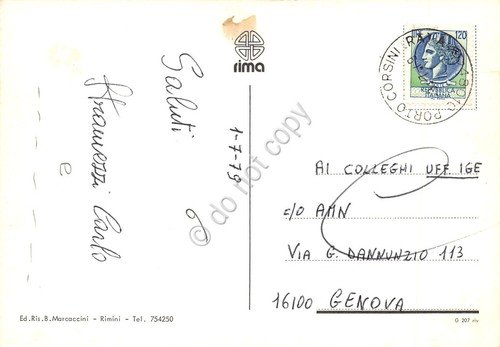 rima
Saluti
1-7-79
e
Carlo
120
REPUBBLICA
ITALIANA
PORTO CORSINI
AI COLLEGHI UFF IGE
c/o AMN
VIA G. DANNUNZIO 113
16100 GENOVA
do not copy
Ed.Ris.B.Marcaccini - Rimini - Tel. 754250